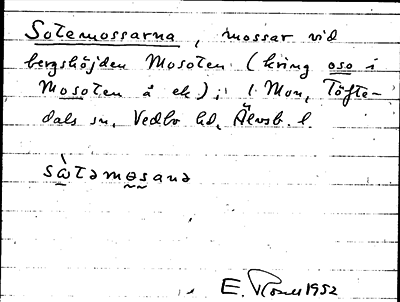 Sotemossarna, mossar vid
bergshöjden Mosoten (kring oso i
Mosoten å ek); i Mon, Töfte-
dals sn, Vedbo hd, Älvsb. l.
sὼtəmɵsaṇə
E. 1952